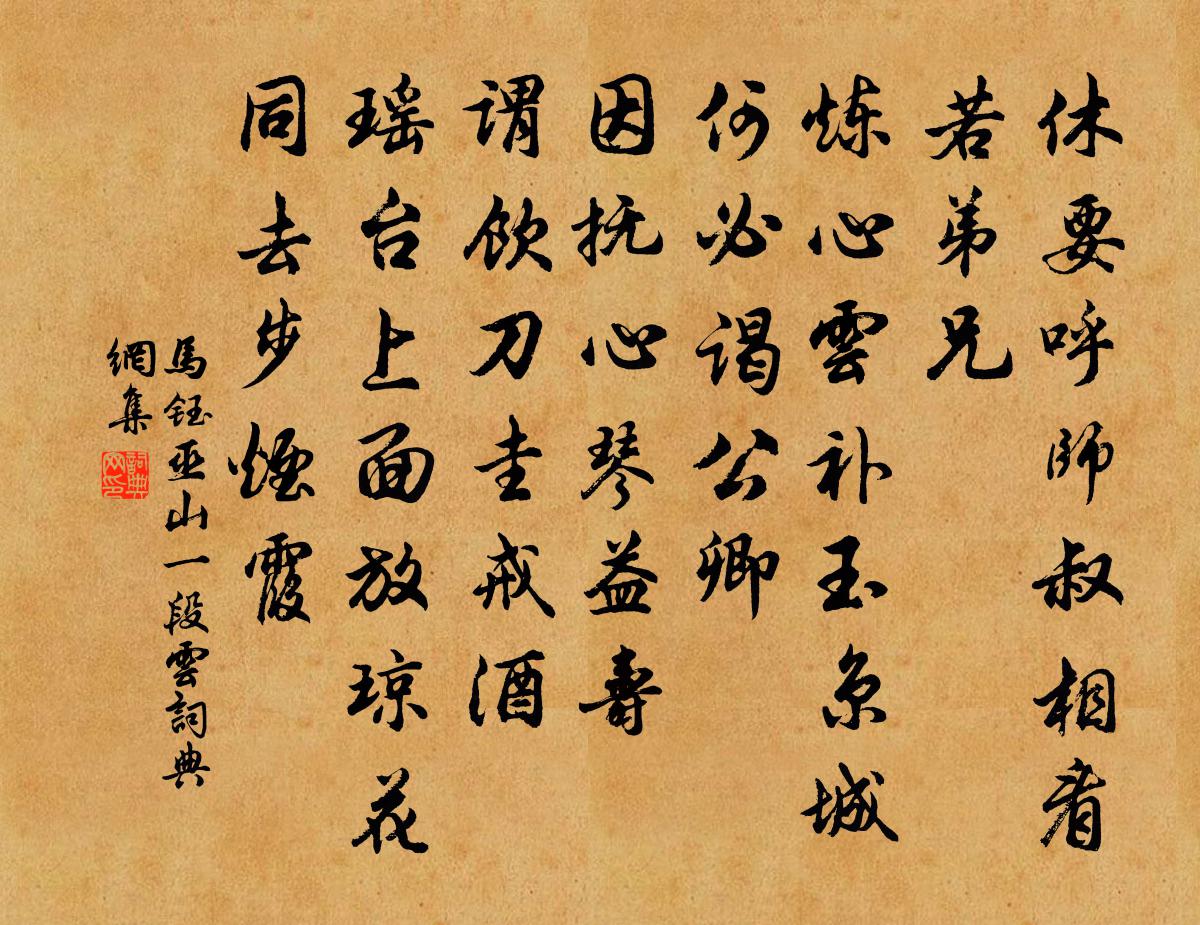 休要呼师叔相看
若弟兄
炼心雲补玉京城
何必谒公卿
因抚心琴益壽
谓饮刀圭戒酒
瑶台上面放琼花
同去步煙霞
馬鈺巫山一段雲詞典
網集
詞典
网印